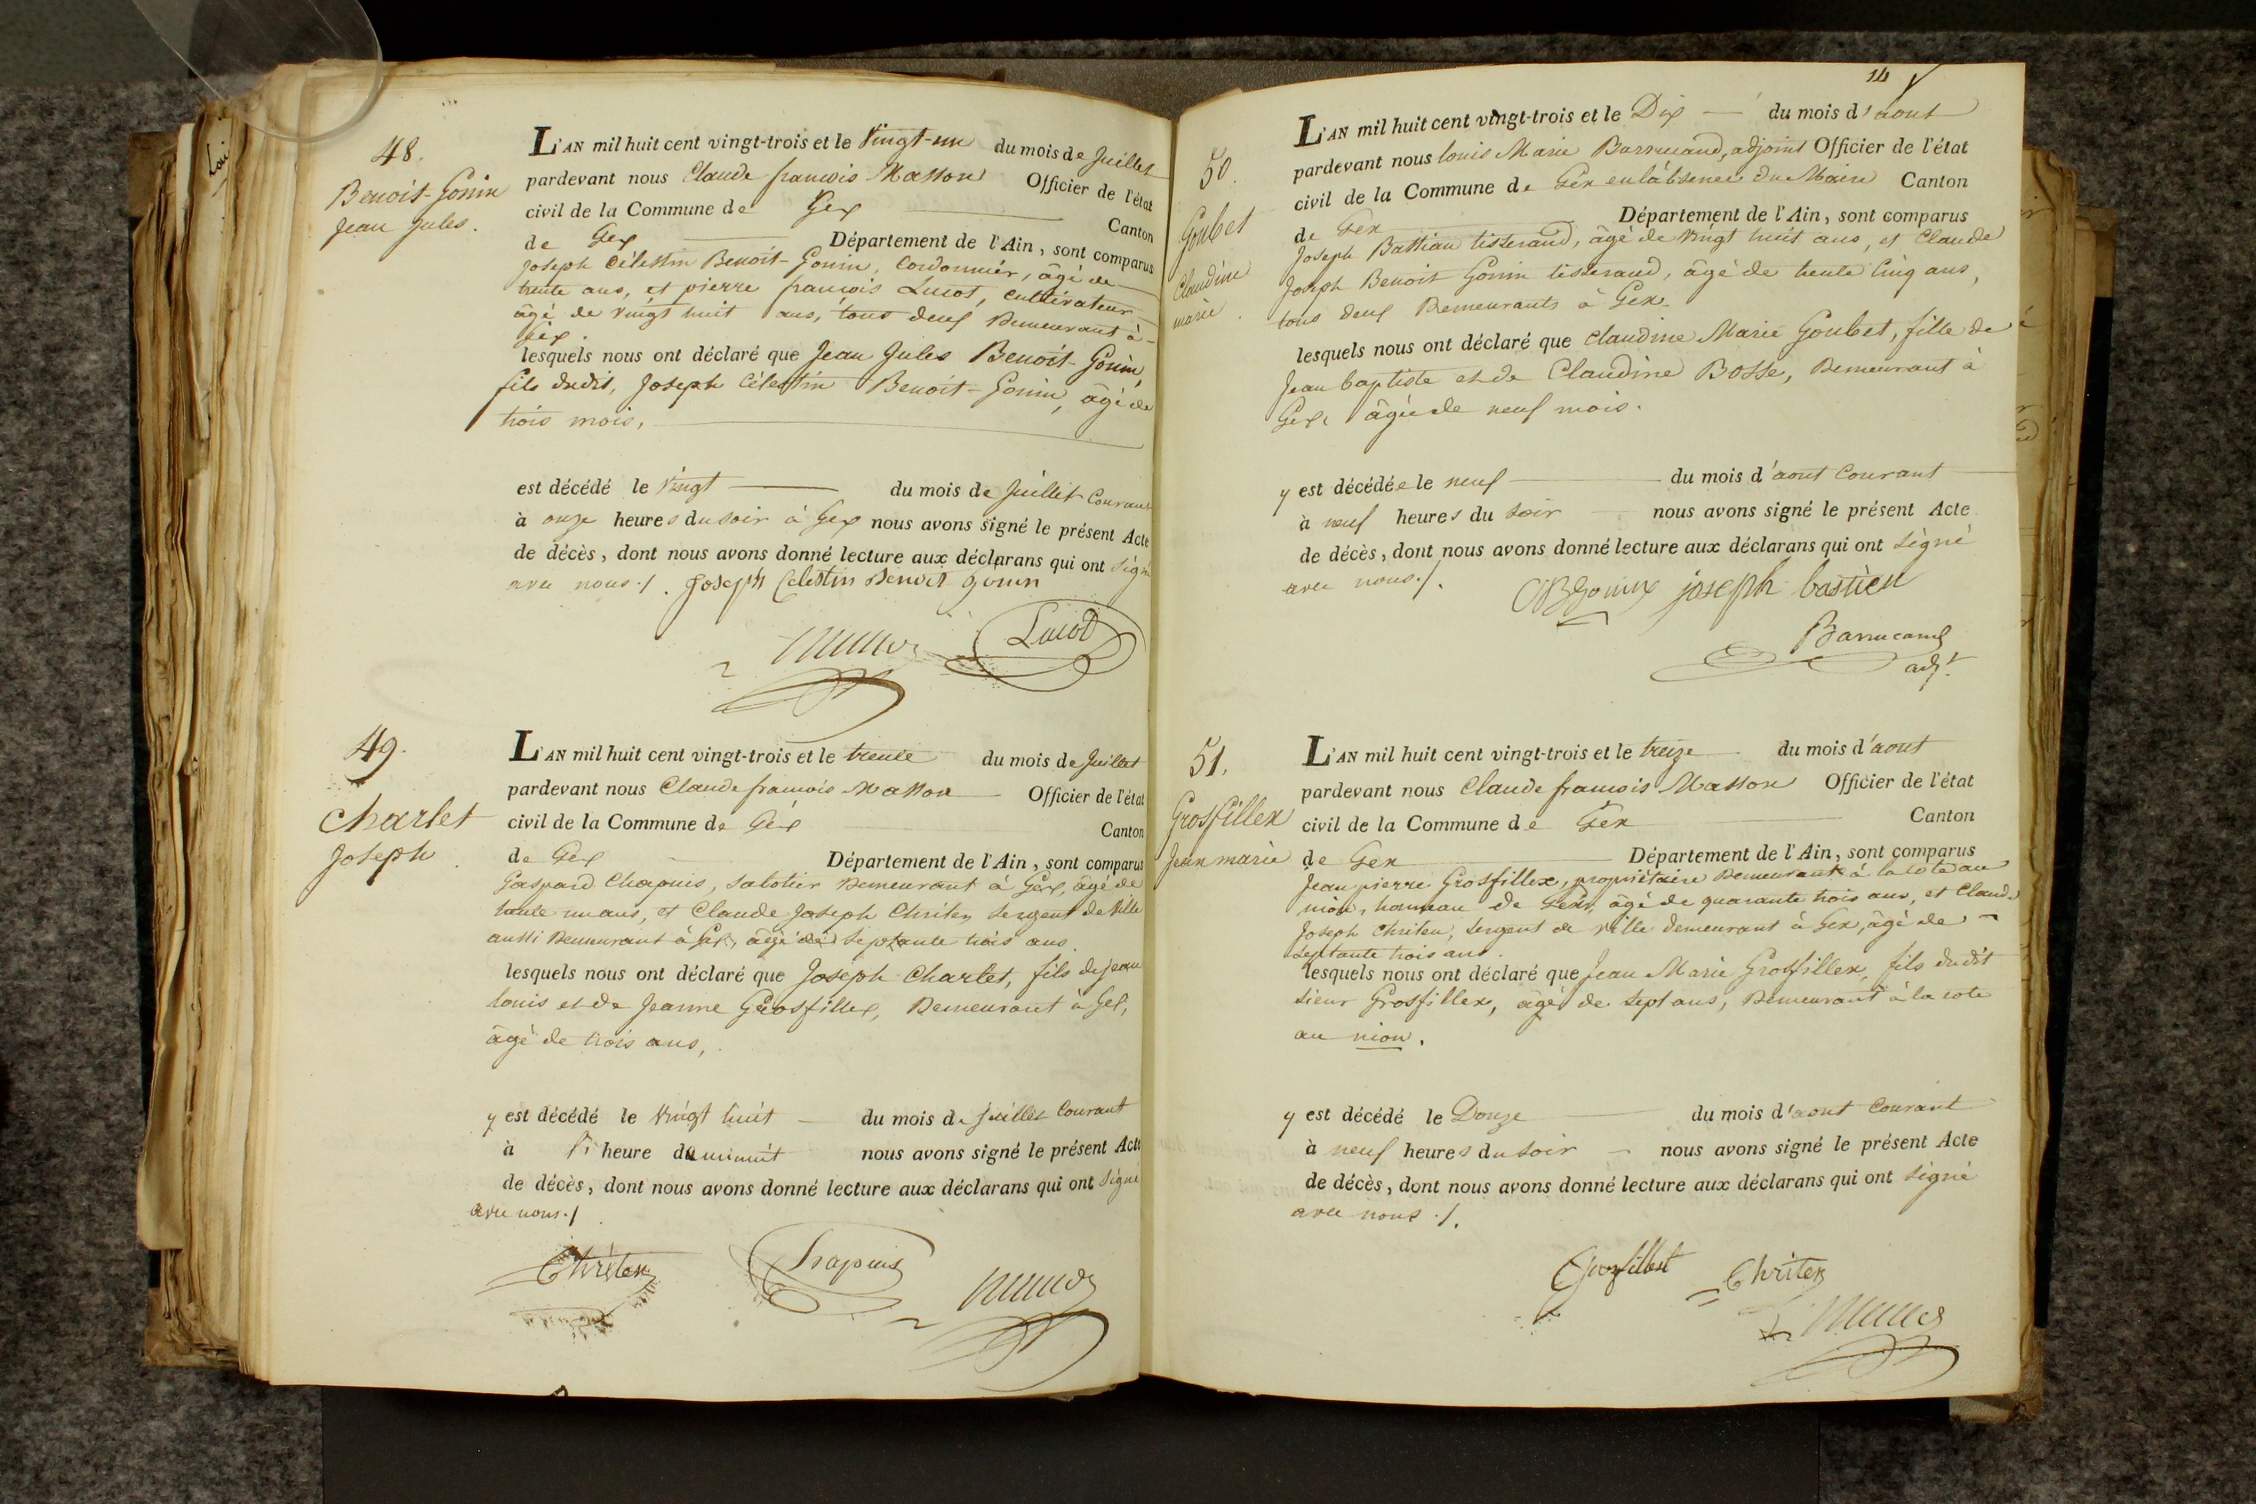 48.
Benoit-Gonin
Jean Jules.
L'AN mil huit cent vingt-trois et le Vingt-un du mois de Juillet
pardevant nous Claude françois Masson Officier de l'état
civil de la Commune de Gex Canton
de Gex Département de l'Ain, sont comparus
Joseph Célestin Benoit-Gonin, Cordonnier, âgé de
trente ans, et pierre françois Lucot, cultivateur
âgé de vingt huit ans, tous deux Demeurant à
Gex.
lesquels nous ont déclaré que Jean Jules Benoit-Gonin,
fils dudit, Joseph Célestin Benoit-Gonin, âgé de
trois mois,
est décédé le Vingt du mois de Juillet Courant
à onze heures du soir à Gex nous avons signé le présent Acte
de décès, dont nous avons donné lecture aux déclarans qui ont signé
avec nous ./. Joseph Celestin Benoit gonin
Lucot
49.
Charlet
Joseph.
L'AN mil huit cent vingt-trois et le trente du mois de Juillet
pardevant nous Claude françois Masson Officier de l'état
civil de la Commune de Gex Canton
de Gex Département de l'Ain, sont comparus
Gaspard Chapuis, sabotier Demeurant à Gex, âgé de
trente un ans, et Claude Joseph Chriten, sergent de Ville
aussi Demeurant à Gex, âgé de Septante trois ans.
lesquels nous ont déclaré que Joseph Charlet, fils de jean
louis et de Jeanne Grosfillex, Demeurant à Gex,
âgé de trois ans,
y est décédé le Vingt huit du mois de Juillet Courant
à heure de minuit nous avons signé le présent Acte
de décès, dont nous avons donné lecture aux déclarans qui ont signé
avec nous ./.
Chriten Chapuis
14
50.
Goubet
Claudine
marie.
L'AN mil huit cent vingt-trois et le Dix du mois d'aout
pardevant nous louis Marie Barrucand, adjoint Officier de l'état
civil de la Commune de Gex en l'absence du Maire Canton
de Gex Département de l'Ain, sont comparus
Joseph Battian tisserand, âgé de vingt huit ans, et Claude
Joseph Benoit Gonin tisserand, âgé de trente Cinq ans,
tous deux Demeurants à Gex
lesquels nous ont déclaré que Claudine Marie Goubet, fille de
Jean baptiste et de Claudine Bosse, Demeurant à
Gex, âgée de neuf mois.
y est décédée le neuf du mois d'aout Courant
à neuf heures du soir nous avons signé le présent Acte
de décès, dont nous avons donné lecture aux déclarans qui ont signé
avec nous ./.
joseph bastien
Barrucand
adjt
51.
Grosfillex
Jean marie
L'AN mil huit cent vingt-trois et le treize du mois d'aout
pardevant nous Claude françois Masson Officier de l'état
civil de la Commune de Gex Canton
de Gex Département de l'Ain, sont comparus
Jean pierre Grosfillex, propriétaire Demeurant à la cote au
nion, hameau de Gex, âgé de quarante trois ans, et Claude
Joseph Chriten, sergent de ville demeurant à Gex, âgé de
septante trois ans.
lesquels nous ont déclaré que Jean Marie Grosfillex, fils dudit
sieur Grosfillex, âgé de sept ans, Demeurant à la cote
au nion.
y est décédé le Douze du mois d'aout Courant
à neuf heures du soir nous avons signé le présent Acte
de décès, dont nous avons donné lecture aux déclarans qui ont signé
avec nous ./.
Chriten